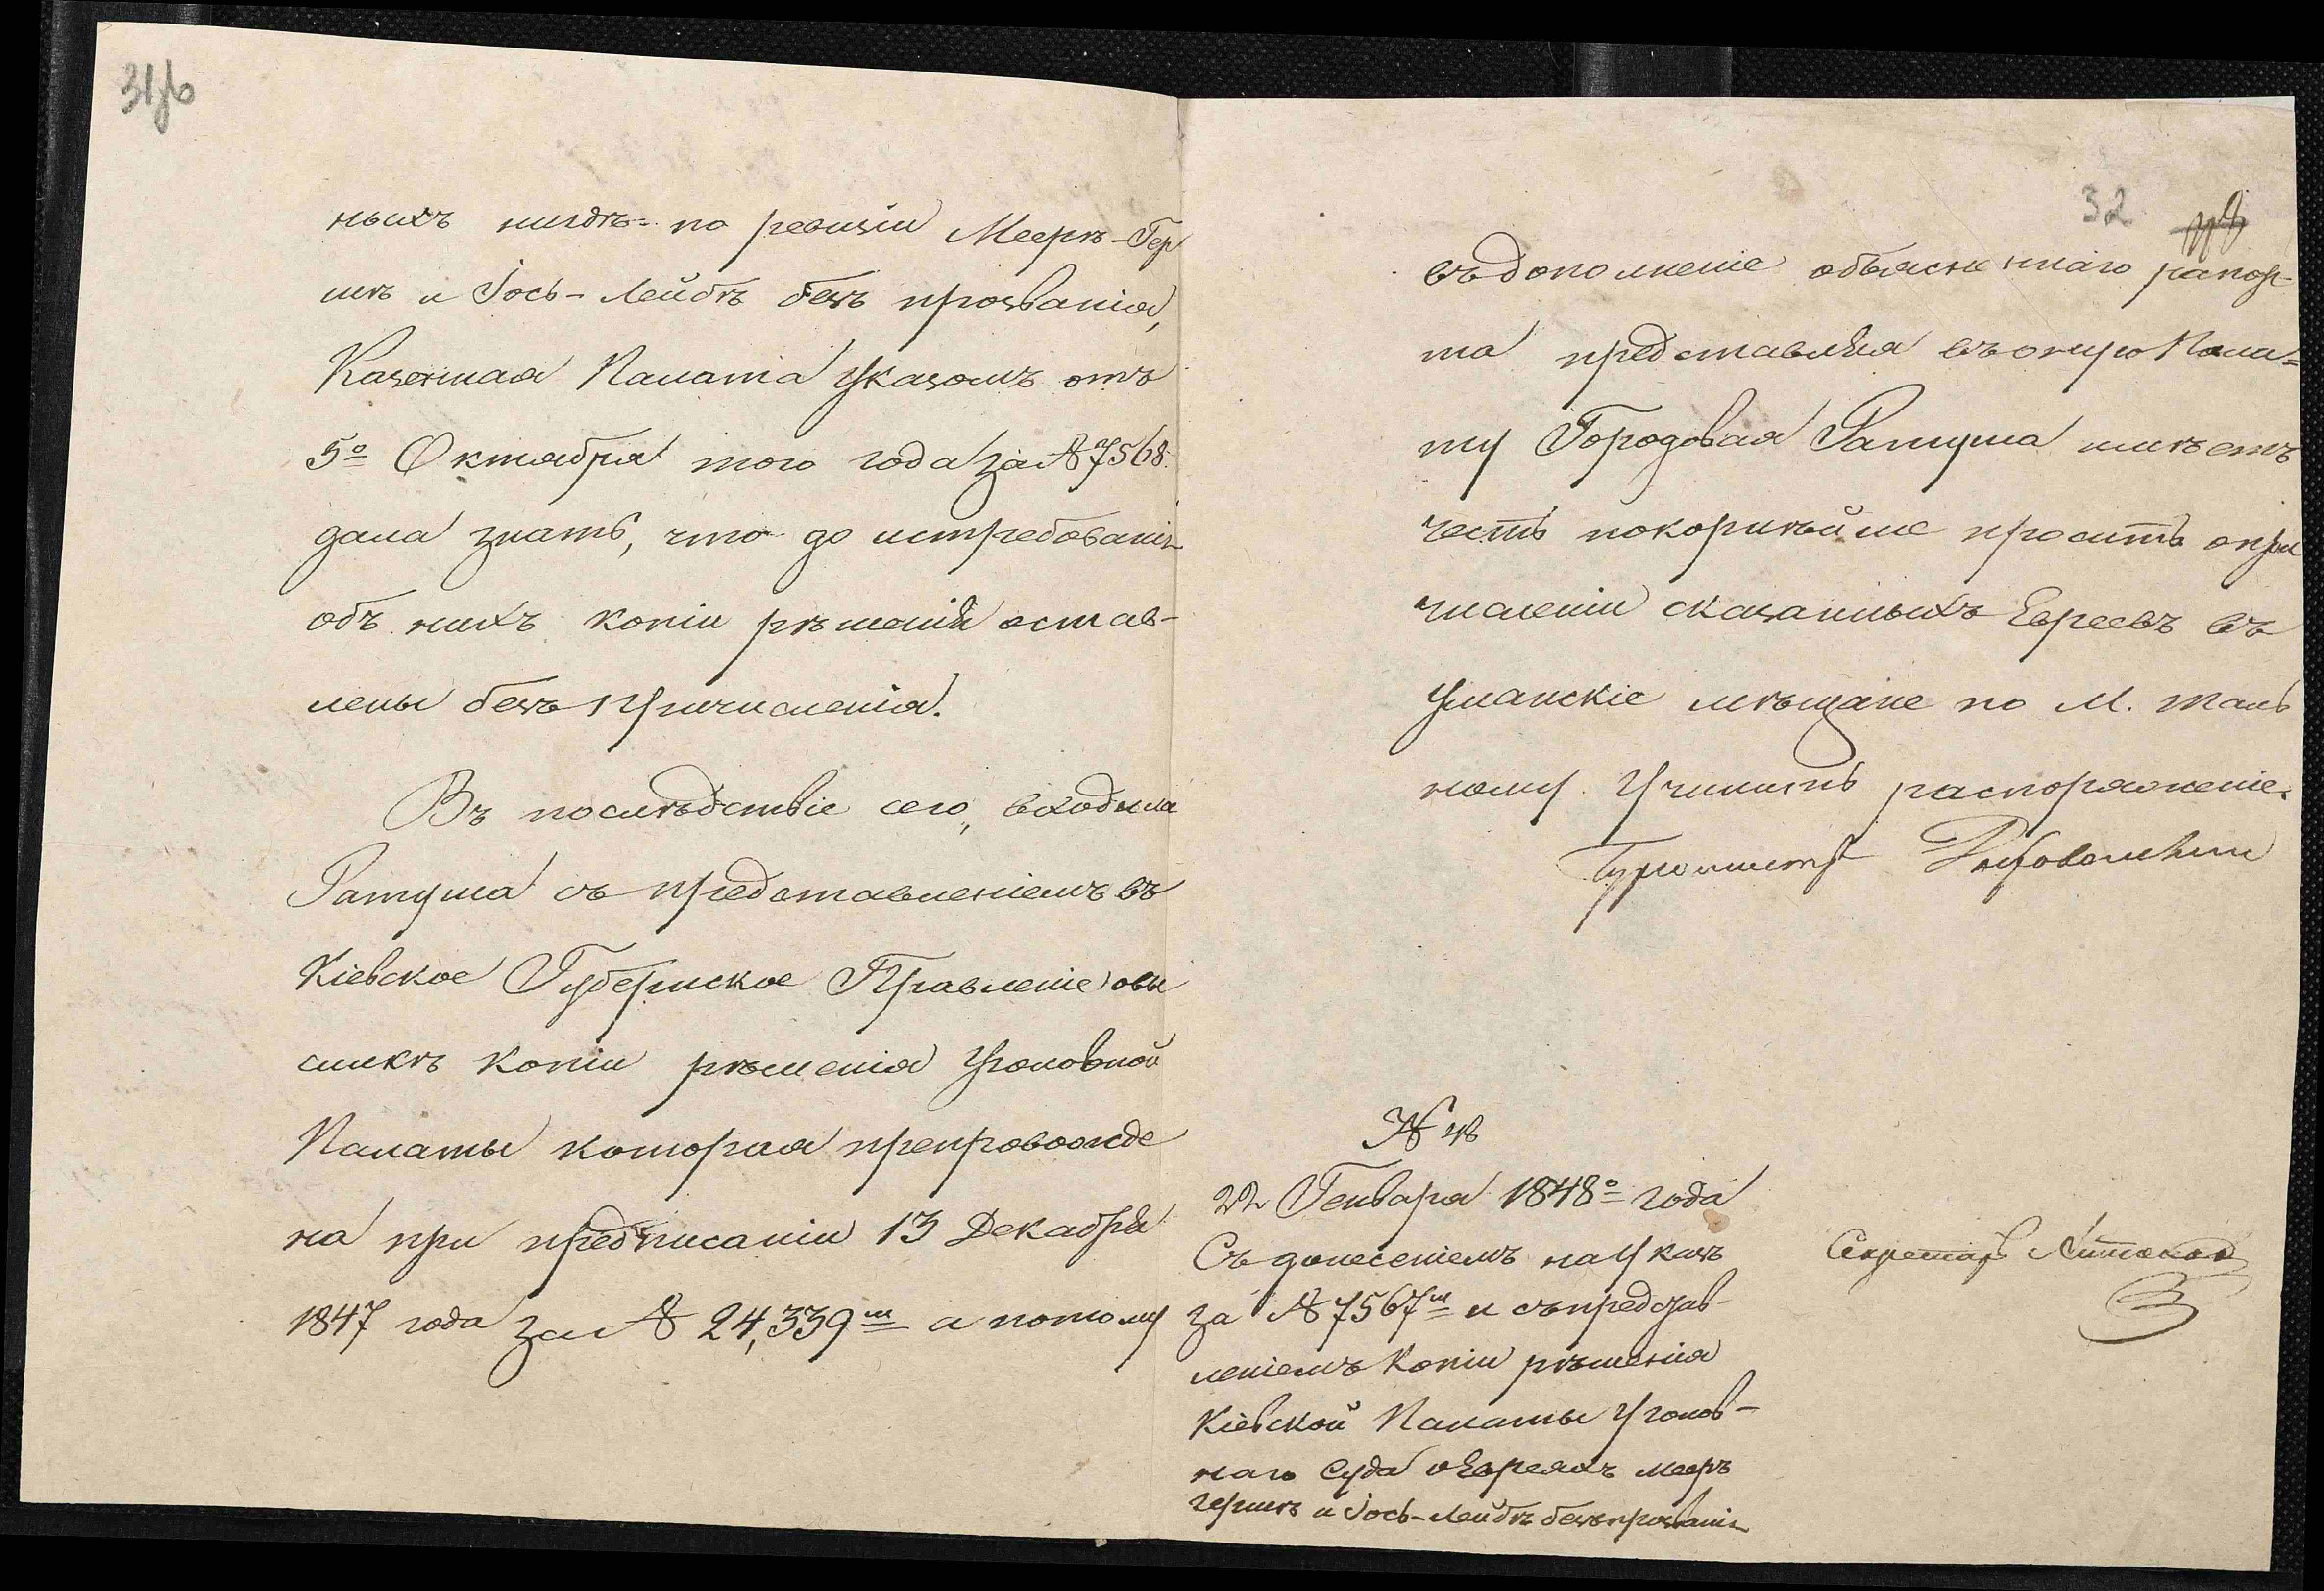 31об
ныхъ нигдѣ по ревизіи Меерѣ-Гер
шкѣ и Іось-Лейбѣ безъ прозванія,
Казенная Палата Указомъ отъ
5о Октября того года за № 7568.
дала знать, что до истребованія
объ нихъ копіи рѣшенія остав-
лены безъ причисленія.
Въ послѣдствіе сего, входила
Ратуша съ представленіемъ въ
Кіевское Губернское Правленіе овы
сылкѣ копіи рѣшенія Уголовной
Палаты которая препровожде
на при предписаніи 13 Декабря
1847 года за № 24,339м а потому
32
въ дополненіе объясненнаго рапор-
та представляя въ оную Пала-
ту Городовая Ратуша имѣетъ
честь покорнѣйше просить опри
численіи сказанныхъ Евреевъ въ
Уманскіе мѣщане по М. Таль
ному. Учинить распоряженіе.
Бургомистръ
№ 48
22 Генваря 1848о года
Съ донесеніемъ на Указъ
за № 7567м и съ представ-
леніемъ Копіи рѣшенія
Кіевской Палаты Уголов-
наго Суда о Евреяхъ Меерѣ
Гершкѣ и Іось-Лейбѣ безъ прозванія
Секретарь